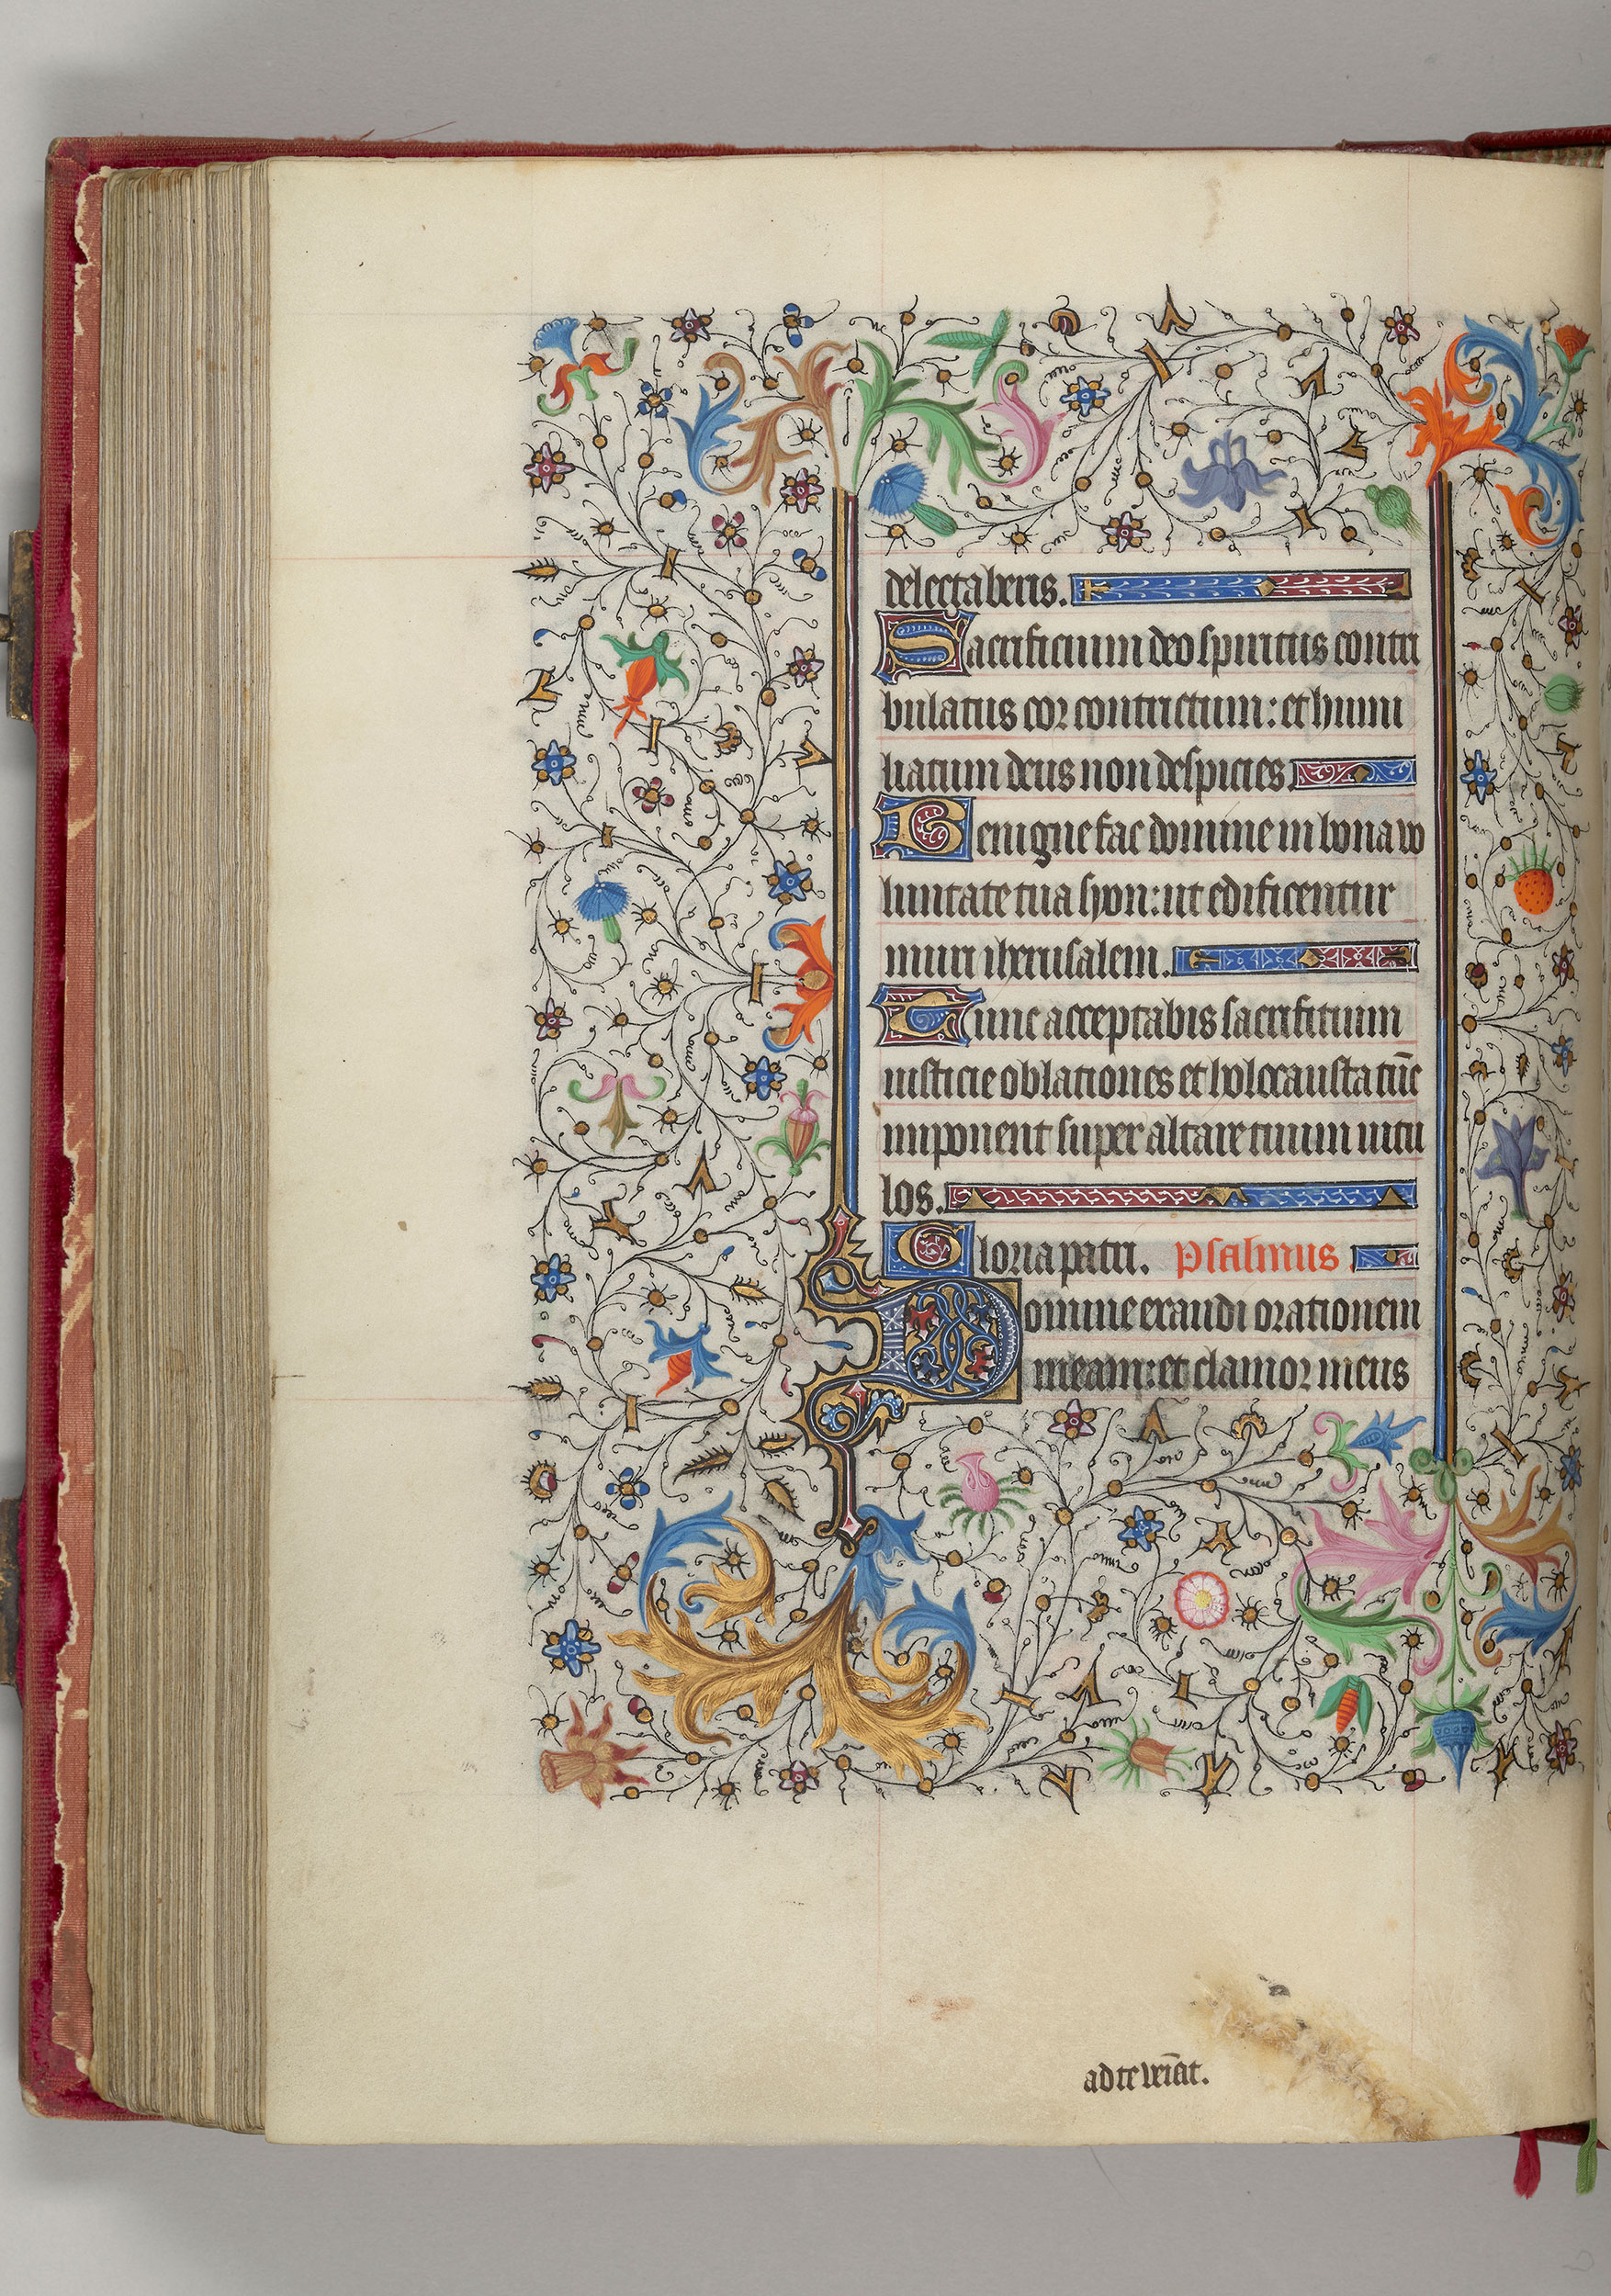 delectaberis.
Sacrificium deo spiritus contri
bulatus cor contrictum: et humi
liatum deus non despicies.
Benigne fac domine in bona vo
luntate tua syon: ut edificentur
muri iherusalem.
Tunc acceptabis sacrificium
iusticie oblationes et holocausta tūc
imponent super altare tuum vitu
los.
Gloria patri. Psalmus
Domine exaudi orationem
meam: et clamor meus
ad te veīat.